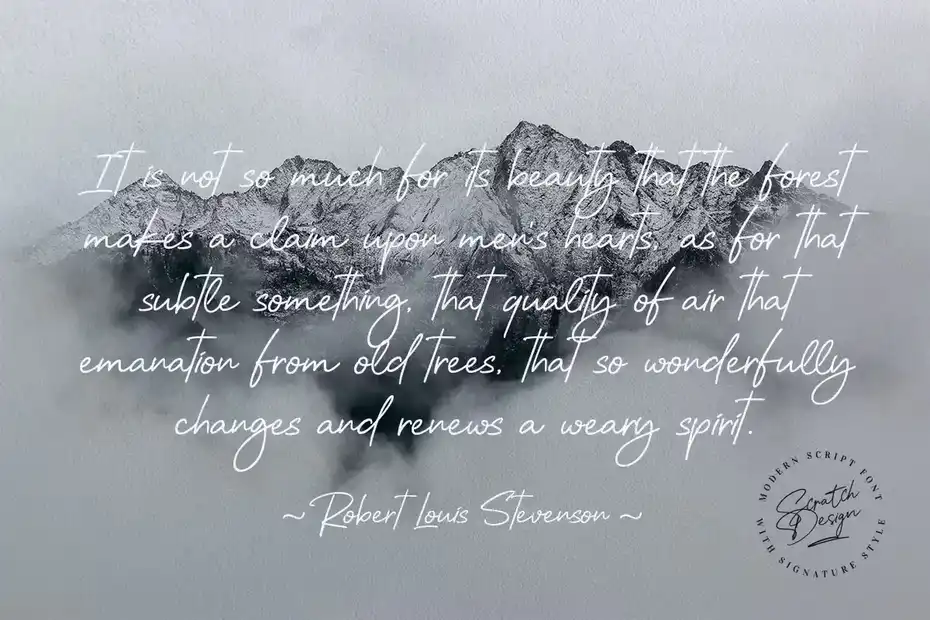 It is not so much for its beauty that the forest
makes a claim upon men's hearts, as for that
subtle something, that quality of air that
emanation from old trees, that so wonderfully
changes and renews a weary spirit.
~ Robert Louis Stevenson ~
MODERN SCRIPT FONT
Scratch
Design
WITH SIGNATURE STYLE